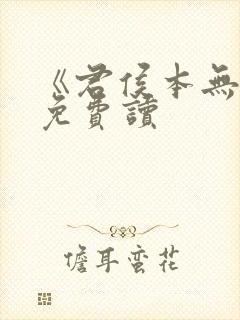 《君侯本無
免費讀
儋耳蛮花